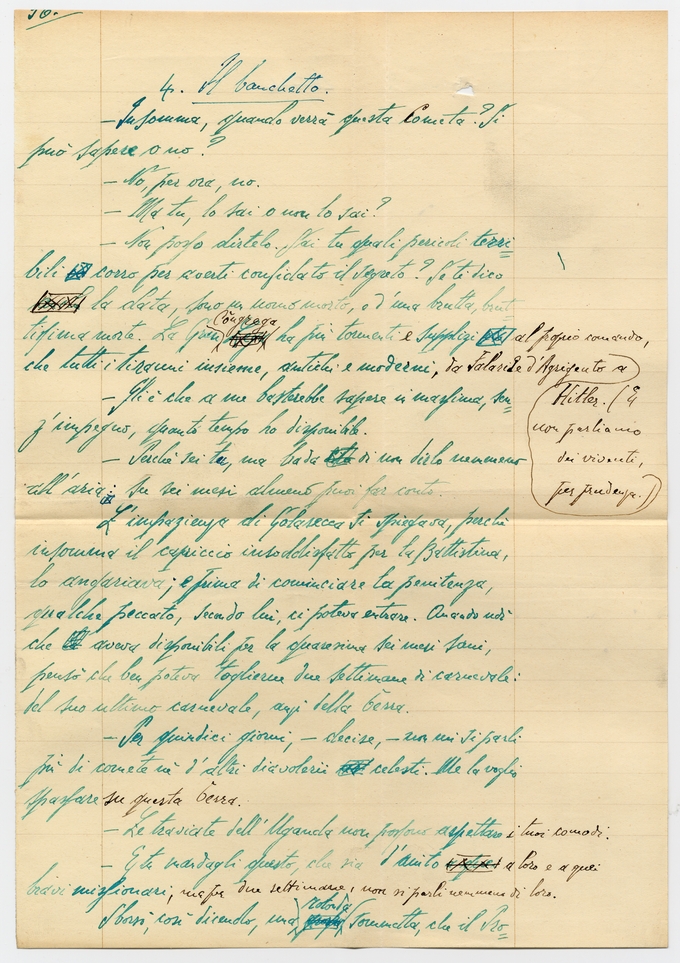 36.
4. Il banchetto.
— Insomma, quando verrà questa Cometa? Si
può sapere o no?
— No, per ora, no.
— Ma tu, lo sai o non lo sai?
— Non posso dirtelo. Sai tu quali pericoli terri=
bili corro per averti confidato il segreto? Se ti dico
la data, sono un uomo morto, e d'una brutta, brut=
tissima morte. La Gran Congrega ha più tormenti e supplizi al proprio comando,
che tutti i tiranni insieme, antichi e moderni, da Falaride d'Agrigento a
Hitler. (E
non parliamo
dei viventi,
per prudenza.)
— Gli è che a me basterebbe sapere in massima, sen=
z'impegno, quanto tempo ho disponibile.
— Perché sei tu, ma bada di non dirlo nemmeno
all'aria: su sei mesi almeno puoi far conto.
L'impazienza di Golasecca si spiegava, perché
insomma il capriccio insoddisfatto per la Battistina,
lo angariava; e prima di cominciare la penitenza,
qualche peccato, secondo lui, ci poteva entrare. Quando udì
che aveva disponibili per la quaresima sei mesi sani,
pensò che ben poteva toglierne due settimane di carnevale:
del suo ultimo carnevale, anzi della Terra.
— Per quindici giorni, — decise, — non mi si parli
più di comete né d'altri diavolerii celesti. Me la voglio
spassare su questa Terra.
— Le traviate dell'Uganda non possono aspettare i tuoi comodi.
— E tu mandagli questo, che sia d'aiuto a loro e a quei
bravi missionari, ma per due settimane, non si parli nemmeno di loro.
Sborsò, così dicendo, una rotonda sommetta, che il Pro=